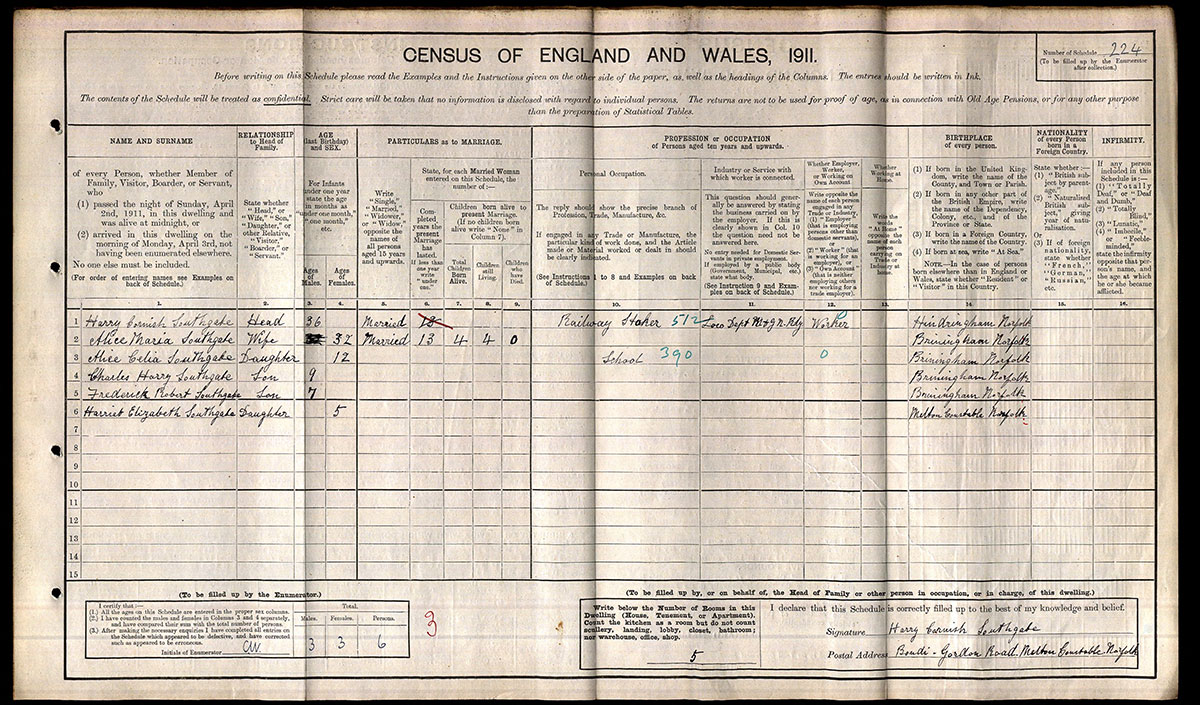 CENSUS OF ENGLAND AND WALES, 1911.
Number of Schedule 224
(To be filled up by the Enumerator
after collection.)
Before writing on this Schedule please read the Examples and the Instructions given on the other side of the paper, as well as the headings of the Columns. The entries should be written in Ink.
The contents of the Schedule will be treated as confidential. Strict care will be taken that no information is disclosed with regard to individual persons. The returns are not to be used for proof of age, as in connection with Old Age Pensions, or for any other purpose
than the preparation of Statistical Tables.
NAME AND SURNAME
of every Person, whether Member of
Family, Visitor, Boarder, or Servant,
who
(1) passed the night of Sunday, April
2nd, 1911, in this dwelling and
was alive at midnight, or
(2) arrived in this dwelling on the
morning of Monday, April 3rd, not
having been enumerated elsewhere.
No one else must be included.
(For order of entering names see Examples on
back of Schedule.)
1.
RELATIONSHIP
to Head of
Family.
State whether
"Head," or
"Wife," "Son,"
"Daughter," or
other Relative,
"Visitor,"
"Boarder," or
"Servant."
2.
AGE
(last Birthday)
and SEX.
For Infants
under one year
state the age
in months as
"under one month,"
"one month,"
etc.
Ages
of
Males.
3.
Ages
of
Females.
4.
PARTICULARS as to MARRIAGE.
Write
"Single,"
"Married,"
"Widower,"
or "Widow,"
opposite the
names of
all persons
aged 15 years
and upwards.
5.
State, for each Married Woman
entered on this Schedule, the
number of:—
Com-
pleted
years the
present
Marriage
has
lasted.
If less than
one year
write
"under
one."
6.
Children born alive to
present Marriage.
(If no children born
alive write "None" in
Column 7).
Total
Children
Born
Alive.
7.
Children
still
Living.
8.
Children
who
have
Died.
9.
PROFESSION or OCCUPATION
of Persons aged ten years and upwards.
Personal Occupation.
The reply should show the precise branch of
Profession, Trade, Manufacture, &c.
If engaged in any Trade or Manufacture, the
particular kind of work done, and the Article
made or Material worked or dealt in should
be clearly indicated.
(See Instructions 1 to 8 and Examples on back
of Schedule.)
10.
Industry or Service with
which worker is connected.
This question should gener-
ally be answered by stating
the business carried on by
the employer. If this is
clearly shown in Col. 10
the question need not be
answered here.
No entry needed for Domestic Ser-
vants in private employment.
If employed by a public body
(Government, Municipal, etc.)
state what body.
(See Instruction 9 and Exam-
ples on back of Schedule.)
11.
Whether Employer,
Worker,
or Working on
Own Account.
Write opposite the
name of each person
engaged in any
Trade or Industry,
(1) "Employer"
(that is employing
persons other than
domestic servants),
or
(2) "Worker" (that
is working for an
employer), or
(3) "Own Account"
(that is neither
employing others
nor working for a
trade employer).
12.
Whether
Working at
Home.
Write the
words
"At Home"
opposite the
name of each
person
carrying on
Trade or
Industry
at
13.
BIRTHPLACE
of every person.
(1) If born in the United King-
dom, write the name of the
County, and Town or Parish.
(2) If born in any other part of
the British Empire, write
the name of the Dependency,
Colony, etc., and of the
Province or State.
(3) If born in a Foreign Country,
write the name of the Country.
(4) If born at sea, write "At Sea."
NOTE.—In the case of persons
born elsewhere than in England or
Wales, state whether "Resident" or
"Visitor" in this Country.
14.
NATIONALITY
of every Person
born in a
Foreign Country.
State whether:—
(1) "British sub-
ject by parent-
age."
(2) "Naturalised
British sub-
ject," giving
year of natu-
ralisation.
Or
(3) If of foreign
nationality,
state whether
"French,"
"German,"
"Russian,"
etc.
15.
INFIRMITY.
If any person
included in this
Schedule is:—
(1) "Totally
Deaf," or "Deaf
and Dumb,"
(2) "Totally
Blind,"
(3) "Lunatic,"
(4) "Imbecile,"
or "Feeble-
minded,"
state the infirmity
opposite that per-
son's name, and
the age at which
he or she became
afflicted.
16.
1 Harry Cornish Southgate Head 36 Married 13 Railway Stoker 512 Loco Dept M&GN Rly Worker Hindringham Norfolk
2 Alice Maria Southgate Wife 32 Married 13 4 4 0 Briningham Norfolk
3 Alice Celia Southgate Daughter 12 School 390 0 Briningham Norfolk
4 Charles Harry Southgate Son 9 Briningham Norfolk
5 Frederick Robert Southgate Son 7 Briningham Norfolk
6 Harriet Elizabeth Southgate Daughter 5 Melton Constable Norfolk
7
8
9
10
11
12
13
14
15
(To be filled up by the Enumerator.)
I certify that:—
(1.) All the ages on this Schedule are entered in the proper sex columns.
(2.) I have counted the males and females in Columns 3 and 4 separately,
and have compared their sum with the total number of persons.
(3.) After making the necessary enquiries I have completed all entries on
the Schedule which appeared to be defective, and have corrected
such as appeared to be erroneous.
Initials of Enumerator CW.
Total.
Males. Females. Persons.
3 3 6
3
(To be filled up by, or on behalf of, the Head of Family or other person in occupation, or in charge, of this dwelling.)
Write below the Number of Rooms in this
Dwelling (House, Tenement, or Apartment).
Count the kitchen as a room but do not count
scullery, landing, lobby, closet, bathroom;
nor warehouse, office, shop.
5
I declare that this Schedule is correctly filled up to the best of my knowledge and belief.
Signature Harry Cornish Southgate
Postal Address Bondi - Gordon Road Melton Constable Norfolk